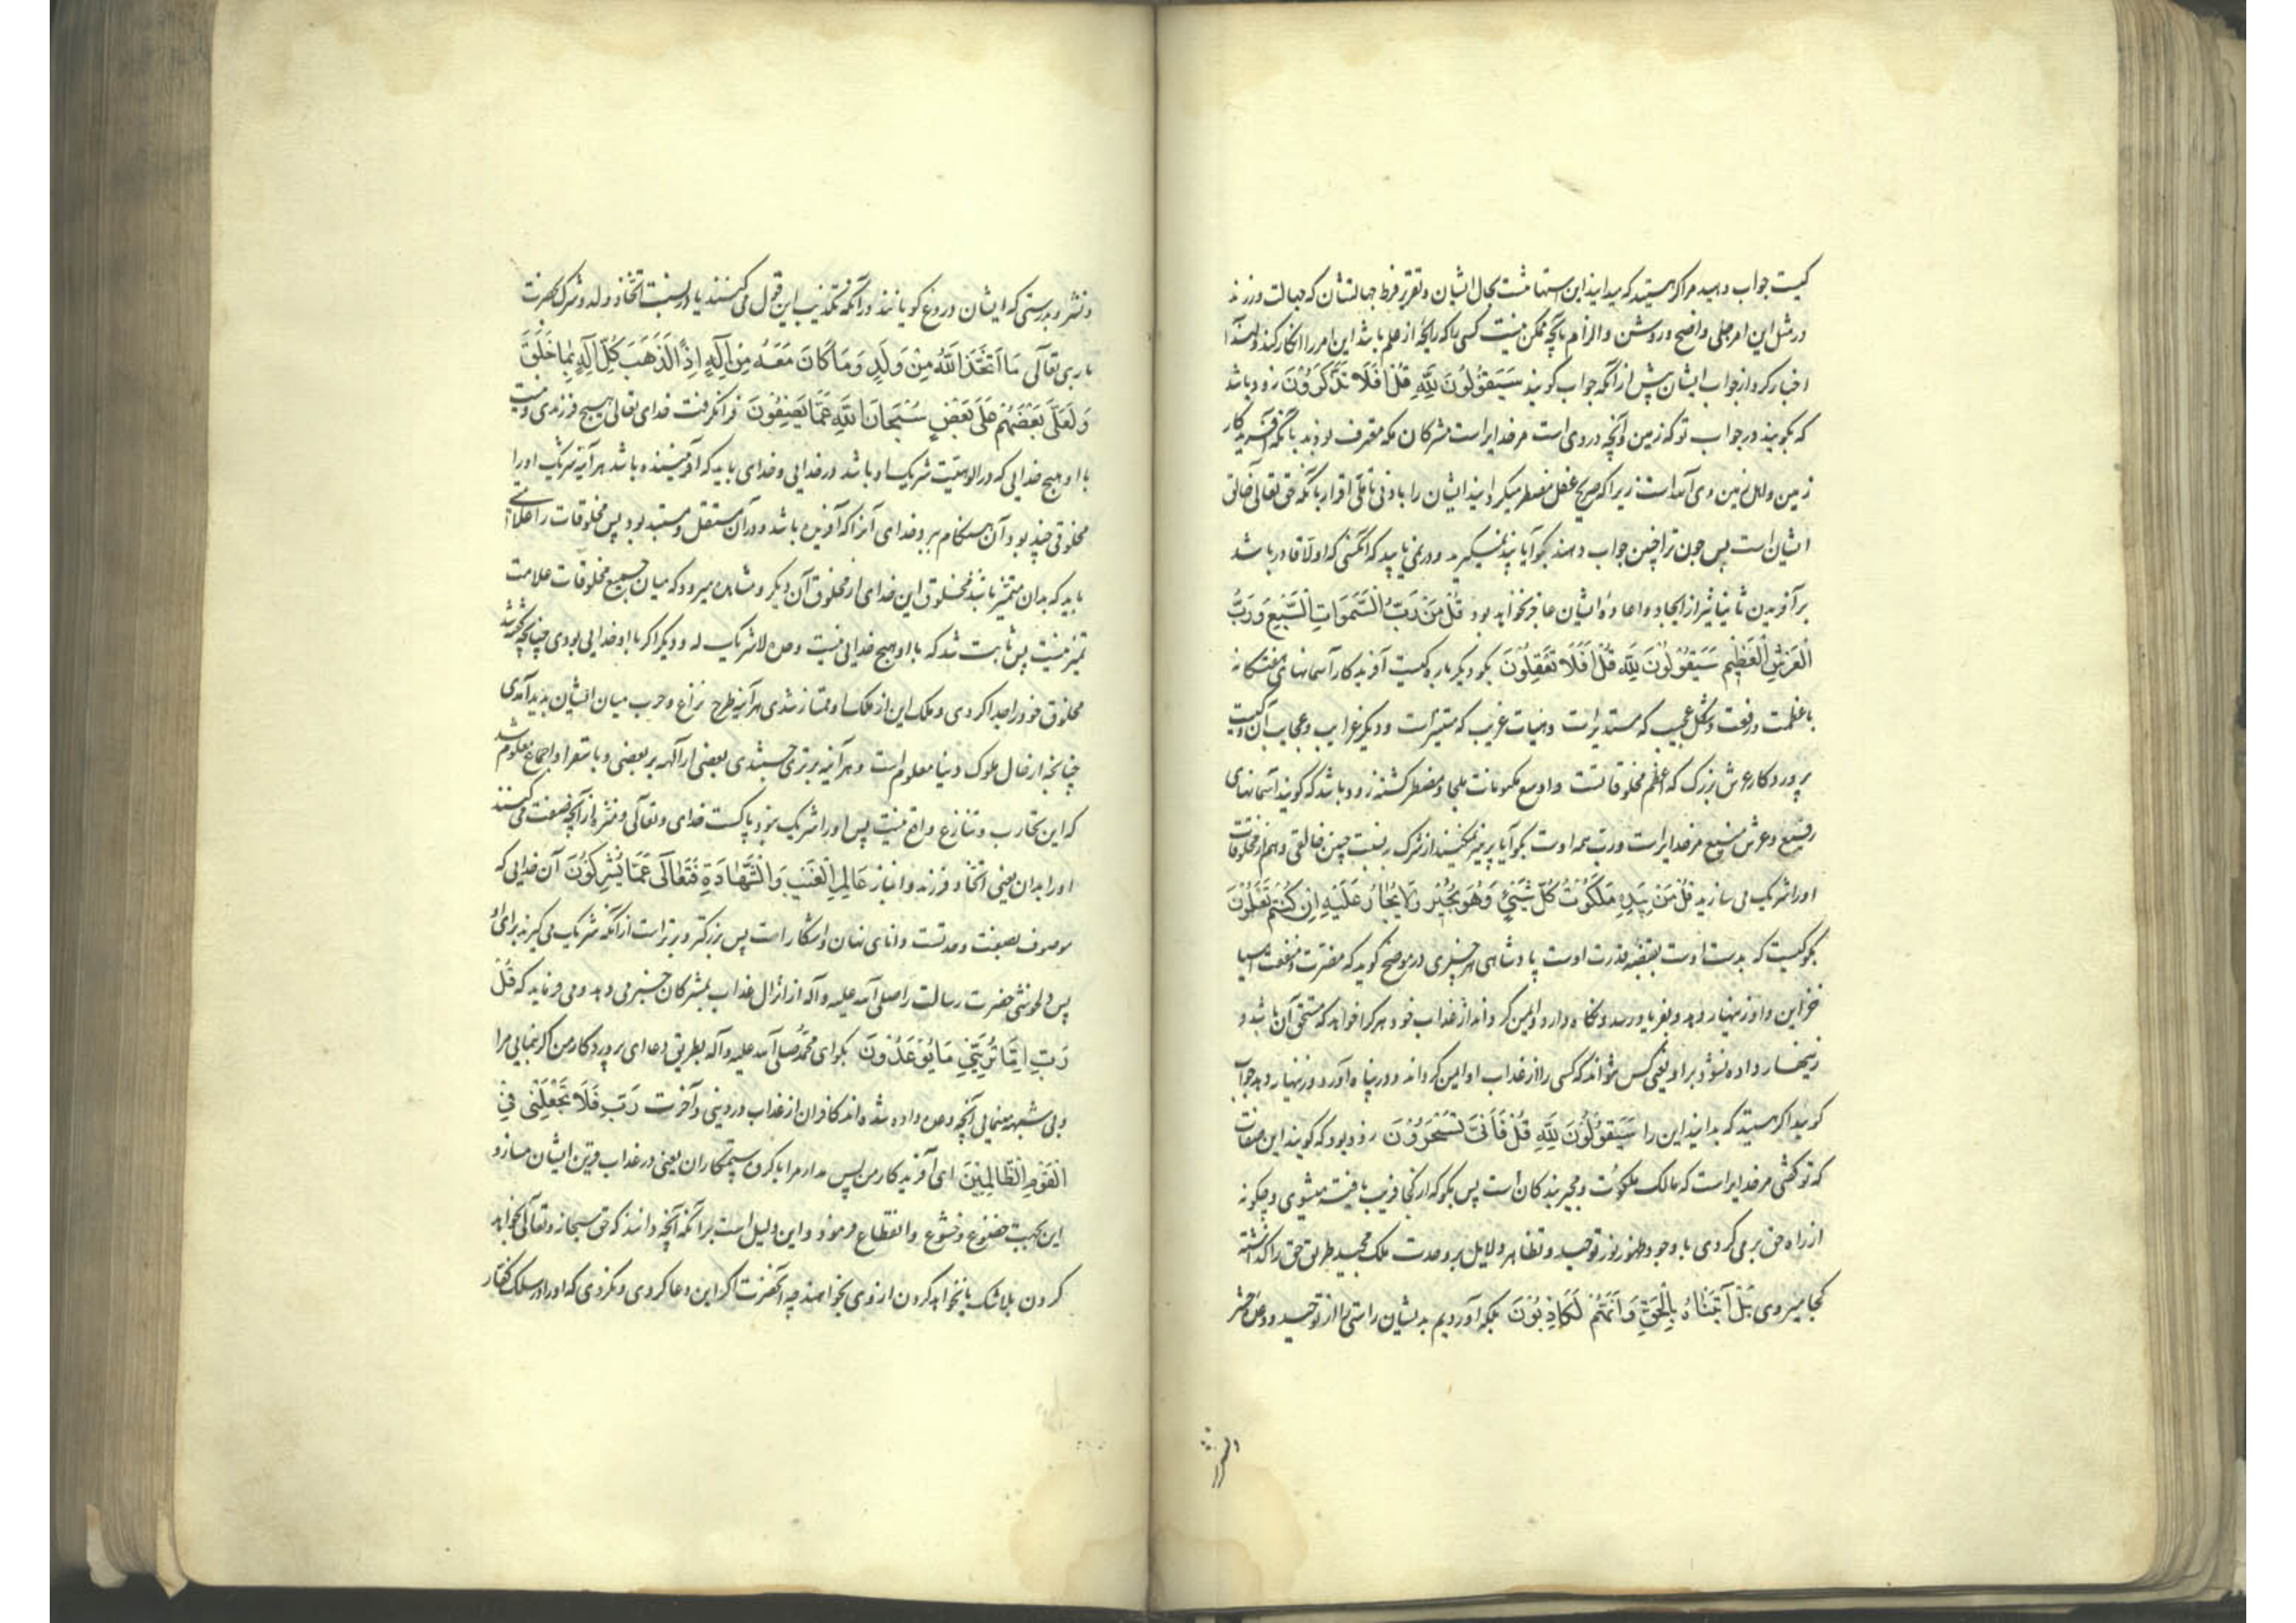 کیست جواب دهید مرا اگر هستید که میدانید این استهانتست بحال ایشان و تقریر فرط جهالتشان که جهالت ورزند
در مثل این امر جلی واضح و روشن و الزام بآنچه ممکن نیست کسی را که رایحهٔ از علم باشد این امر را انکار کند و لهذا
اخبار کرد از جواب ایشان پیش از آنکه جواب گویند سَيَقُولُونَ لِلَّهِ قُلْ أَفَلَا تَذَكَّرُونَ زود باشد
که بگویند در جواب تو که زمین و آنچه در وی است مر خدایراست مشرکان مکه معترف بودند بآنکه آفریدگار
زمین و اهل زمین وی آمد است زیرا که صریح عقل مضطر میگرداند ایشان را بادنی تاملی اقرار بآنکه حق تعالی خالق
ایشان است پس چون ترا چنین جواب دهند بگو آیا پند نمیگیرید و در نمی‌یابید که آنکسی که اولا قادر باشد
بر آفریدن ثانیا نیز از ایجاد و اعادهٔ ایشان عاجز نخواهد بود قُلْ مَنْ رَبُّ السَّمَوَاتِ السَّبْعِ وَرَبُّ
الْعَرْشِ الْعَظِيمِ سَيَقُولُونَ لِلَّهِ قُلْ أَفَلَا تَعْقِلُونَ بگو دیگر باره کیست آفریدگار آسمانهای هفتگانه
با عظمت و رفعت و شکل عجیب که مستدیر است و هیات غریب که متمیز است و دیگر غرایب و عجایب آن و کیست
پروردگار عرش بزرگ که اعظم مخلوقاتست و اوسع مکونات ملجا و مضطر گشته زود باشد که گویند آسمانهای
رفیع و عرش منیع مر خدایراست و رب همه اوست بگو آیا پرهیز نمیکنید از شرک بنسبت چنین خالقی و هم از مخلوقات
او را شریک می سازید قُلْ مَنْ بِيَدِهِ مَلَكُوتُ كُلِّ شَيْءٍ وَهُوَ يُجِيرُ وَلَا يُجَارُ عَلَيْهِ إِنْ كُنْتُمْ تَعْلَمُونَ
بگو کیست که بدست اوست بقبضه قدرت اوست پادشاهی هر چیزی در موضح گوید که مضرت و منفعت اشیا
خزاین و او زنهار دهد و بفریاد رسد و نگاه دارد و ایمن گرداند از عذاب خود هر کرا خواهد که مستحق آن باشد و
زنهار داده نشود بر او یعنی کس نتواند که کسی را از عذاب او ایمن گرداند و در پناه آورد و زنهار دهد جواب
گویید اگر هستید که بدانید این را سَيَقُولُونَ لِلَّهِ قُلْ فَأَنَّى تُسْحَرُونَ زود بود که گویند این صفات
که تو گفتی مر خدایراست که مالک ملکوت و مجیر بندگان است پس بگو که از کجا فریب یافته میشوی و چگونه
از راه حق بر می گردی با وجود ظهور نور توحید و تظاهر دلایل بر وحدت ملک مجید طریق حق را گذاشته
کجا میروی بَلْ أَتَيْنَاهُمْ بِالْحَقِّ وَإِنَّهُمْ لَكَاذِبُونَ بلکه آوردیم بدیشان راستی را از توحید و وعدهٔ حشر
و نشر و بدرستی که ایشان دروغ گویانند در آنکه تکذیب این قول می کنند یا در نسبت اتخاذ ولد و شرک بحضرت
باری تعالی مَا اتَّخَذَ اللَّهُ مِنْ وَلَدٍ وَمَا كَانَ مَعَهُ مِنْ إِلَهٍ إِذًا لَذَهَبَ كُلُّ إِلَهٍ بِمَا خَلَقَ
وَلَعَلَى بَعْضُهُمْ عَلَى بَعْضٍ سُبْحَانَ اللَّهِ عَمَّا يَصِفُونَ فرا نگرفت خدای تعالی هیچ فرزندی و نیست
با او هیچ خدایی که در الوهیت شریک او باشد در خدایی و خدای باید که آفریننده باشد هر آینه شریک او را
مخلوقی چند بود و آن هنگام ببرد خدای آنرا که آفریده باشد و در آن مستقل و مستبد بود پس مخلوقات را علامتی
باید که بدان متمیز باشد مخلوق این خدای از مخلوق آن دیگر و مشاهده میرود که میان جمیع مخلوقات علامت
تمیز نیست پس ثابت شد که با او هیچ خدایی نیست وحده لا شریک له و دیگر اگر با او خدایی بودی چنانچه گفته شد
مخلوق خود را جدا کردی و ملک این از ملک او ممتاز شدی هر آینه طرح نزاع و حرب میان ایشان پدید آمدی
چنانچه از حال ملوک دنیا معلوم است و هر آینه برتری جستندی بعضی از آلهه بر بعضی و باستقرا و اجماع معلوم شد
که این تحارب و تنازع واقع نیست پس او را شریک نبود پاکست خدای و تعالی و منزه از آنچه صفت می کنند
او را بدان یعنی اتخاذ فرزند و انباز عَالِمِ الْغَيْبِ وَالشَّهَادَةِ فَتَعَالَى عَمَّا يُشْرِكُونَ آن خدایی که
موصوف بصفت وحدتست دانای نهان و آشکار است پس بزرگتر و برتر است از آنکه شریک می گیرند برای او
پس دلخوشی حضرت رسالت را صلی الله علیه و آله از انزال عذاب بمشرکان خبر می دهد و می فرماید که قُلْ
رَبِّ إِمَّا تُرِيَنِّي مَا يُوعَدُونَ بگو ای محمد صلی الله علیه و آله بطریق دعا ای پروردگار من اگر بنمایی مرا
و بی شبهه بنمایی آنچه وعده داده شده‌اند کافران از عذاب در دینی و آخرت رَبِّ فَلَا تَجْعَلْنِي فِي
الْقَوْمِ الظَّالِمِينَ ای آفریدگار من پس مدار مرا با گروه ستمکاران یعنی در عذاب قرین ایشان مساز و
این بجهت خضوع و خشوع و انقطاع فرمود و این دلیل است بر آنکه آنچه دانند که حق سبحانه و تعالی بخواهد
کردن بلا شک یا نخواهد کردن از وی بخواهند چه آنحضرت اگر این دعا کردی و نکردی که او را در سلک کفار